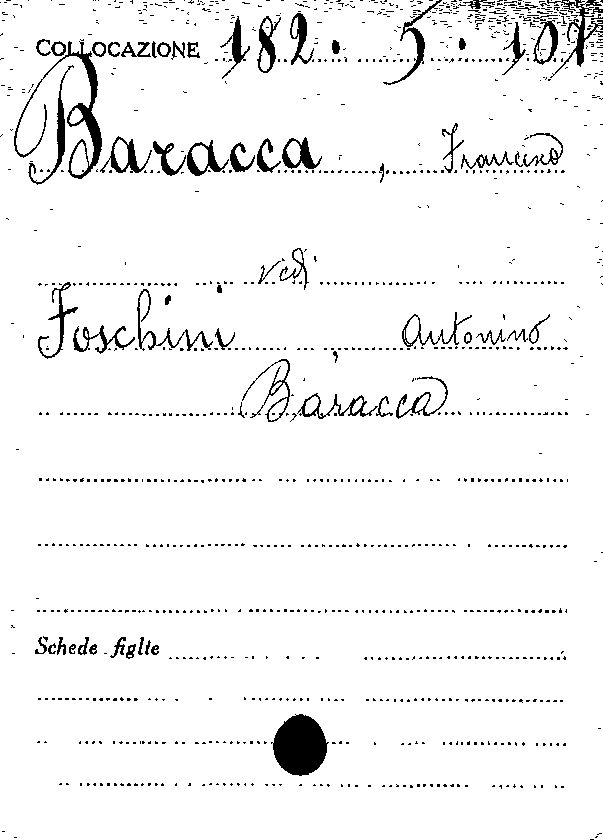 COLLOCAZIONE 182. 5. 107
Baracca, Francesco
vedi
Foschini, Antonino
Baracca
Schede figlte